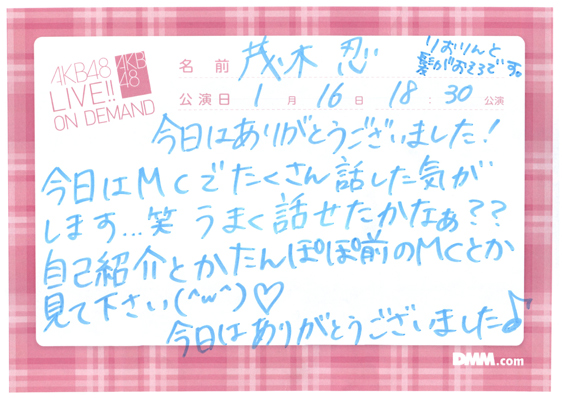 AKB48
LIVE!!
ON DEMAND
AKB
48
名 前 茂木 忍
りおりんと
髪がおそろです。
公演日 1 月 16 日 18 : 30 公演
今日はありがとうございました!
今日はMCでたくさん話した気が
します...笑 うまく話せたかなぁ??
自己紹介とかたんぽぽ前のMCとか
見て下さい(^w^)♡
今日はありがとうございました♪
DMM.com